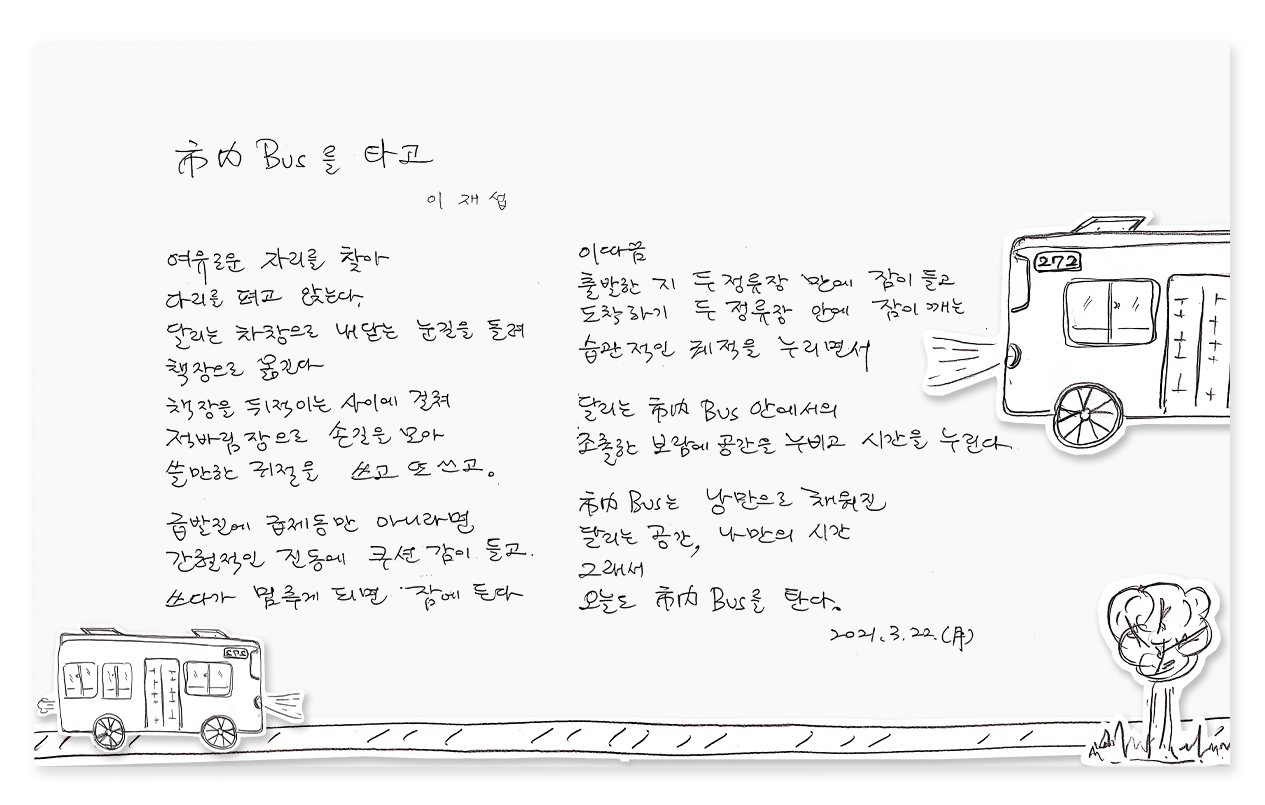 市内 Bus를 타고
이재섭
여유로운 자리를 찾아
다리를 펴고 앉는다.
달리는 차창으로 내닫는 눈길을 돌려
책장으로 옮긴다
책장을 뒤적이는 사이에 걸쳐
적바림장으로 손길을 모아
쓸만한 귀절을 쓰고 또 쓰고.
급발진에 급제동만 아니라면
간헐적인 진동에 쿠션감이 들고.
쓰다가 멈추게 되면 잠에 든다
이따끔
출발한 지 두 정류장 만에 잠이 들고
도착하기 두 정류장 안에 잠이 깨는
습관적인 쾌적을 누리면서
달리는 市内 Bus 안에서의
조촐한 보람에 공간을 누비고 시간을 누린다.
市内 Bus는 낭만으로 채워진
달리는 공간, 나만의 시간
그래서
오늘도 市内 Bus를 탄다.
2021.3.22.(月)
272
272